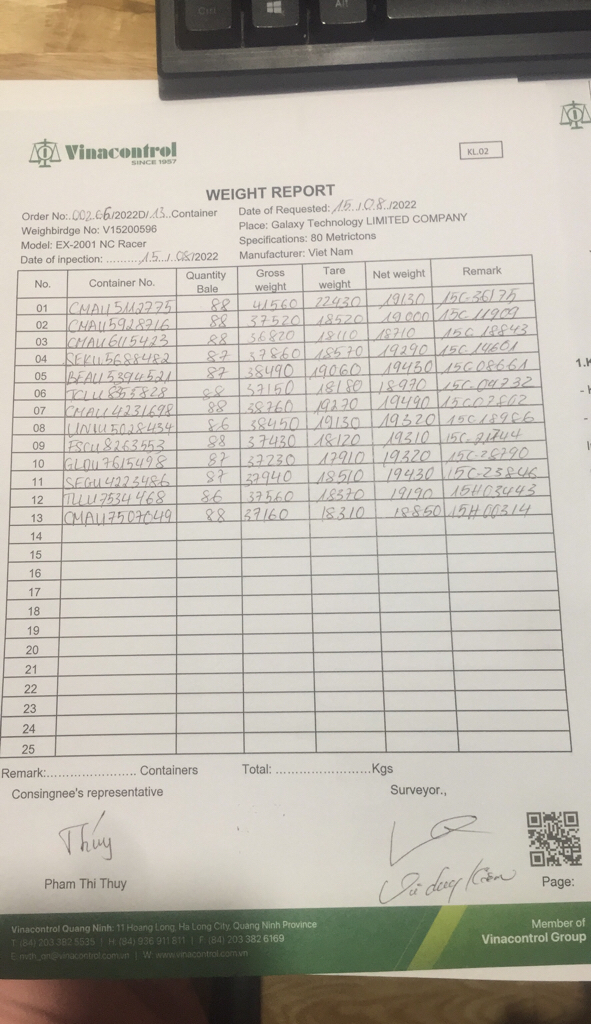 Ctrl
Alt
Vinacontrol
SINCE 1957
KL.02
WEIGHT REPORT
Order No:.00266/2022D/.13..Container
Date of Requested: .15./.08./2022
Weighbirdge No: V15200596
Place: Galaxy Technology LIMITED COMPANY
Model: EX-2001 NC Racer
Specifications: 80 Metrictons
Date of inpection: .........15../.08/2022
Manufacturer: Viet Nam
No. Container No. Quantity Bale Gross weight Tare weight Net weight Remark
01 CMAU5112775 88 41560 22430 19130 15C-36175
02 CMAU5928716 88 37520 18520 19000 15C-11909
03 CMAU6115423 88 36820 18110 18710 15C 18843
04 SEKU5688482 87 37860 18570 19290 15C-14601
05 BEAU5394521 87 38490 19060 19430 15C08661
06 88 37150 18180 18970 15C-04232
07 CMAU4231698 88 38760 19270 19490 15C02802
08 86 38450 19130 19320 15C18986
09 FSCU8263553 88 37430 18120 19310
10 87 37230 17910 19320 15C-28790
11 SEGU4223486 87 37940 18510 19430 15C-23846
12 86 37560 18370 19190 15H03443
13 CMAU7507049 88 37160 18310 18850 15H00314
14
15
16
17
18
19
20
21
22
23
24
25
Remark:....................... Containers Total: .........................Kgs
Consingnee's representative
Surveyor.,
Thúy
Pham Thi Thuy
Page:
Vinacontrol Quang Ninh: 11 Hoang Long, Ha Long City, Quang Ninh Province
T: (84) 203 382 5535 | H: (84) 936 911 811 | F: (84) 203 382 6169
W: www.vinacontrol.com.vn
Member of
Vinacontrol Group